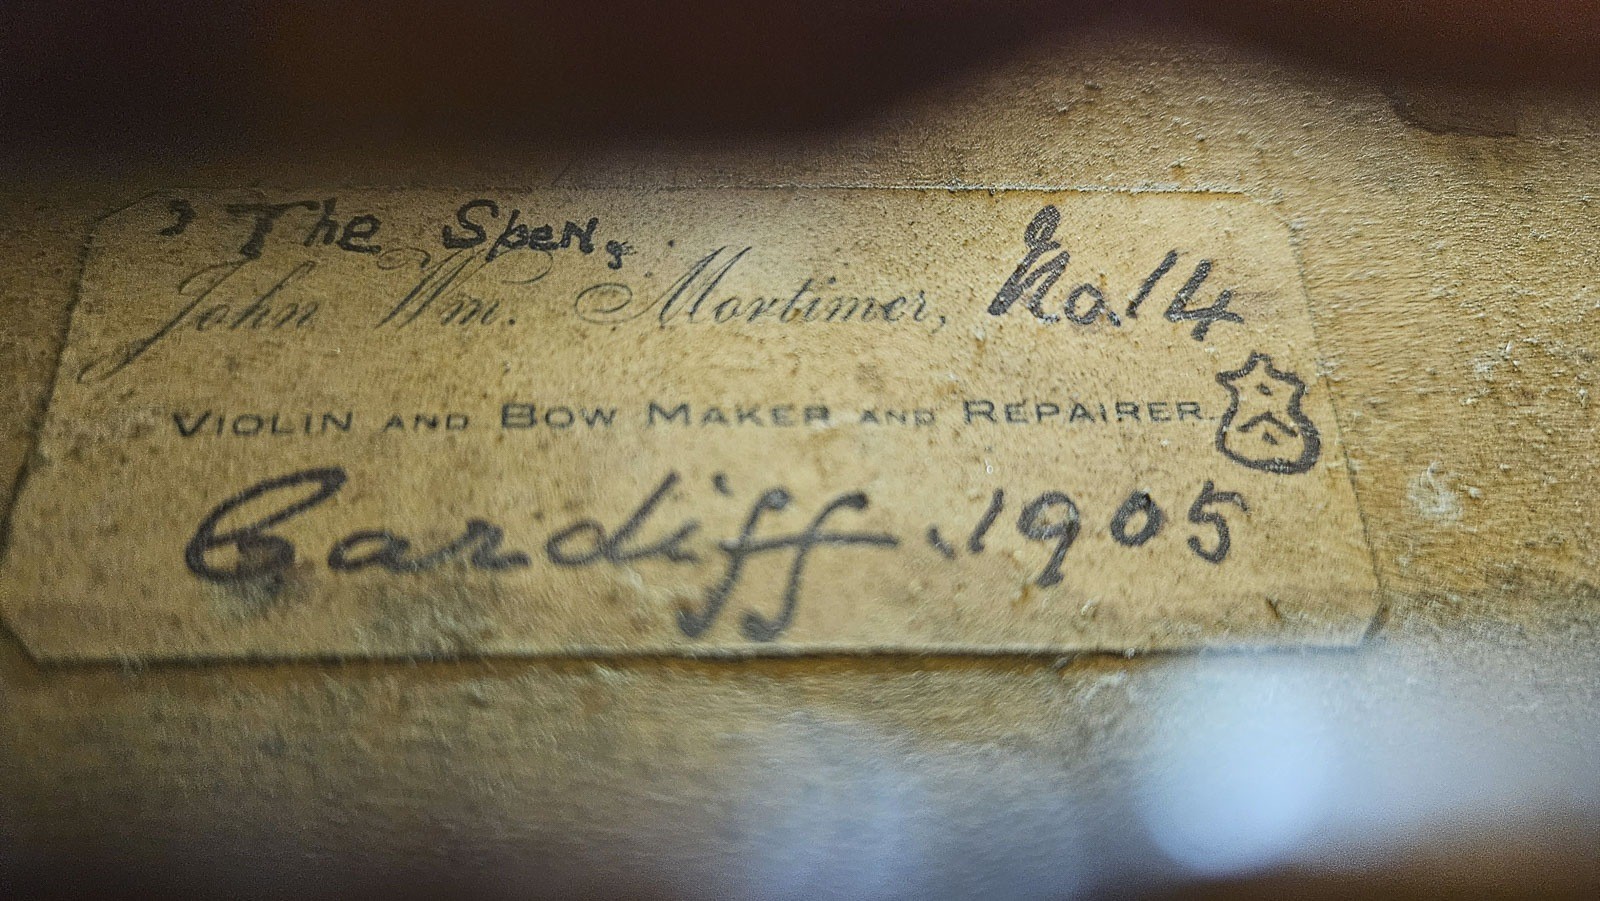 ' The Spen,
John Wm. Mortimer, No. 14
VIOLIN AND BOW MAKER AND REPAIRER.
Cardiff. 1905